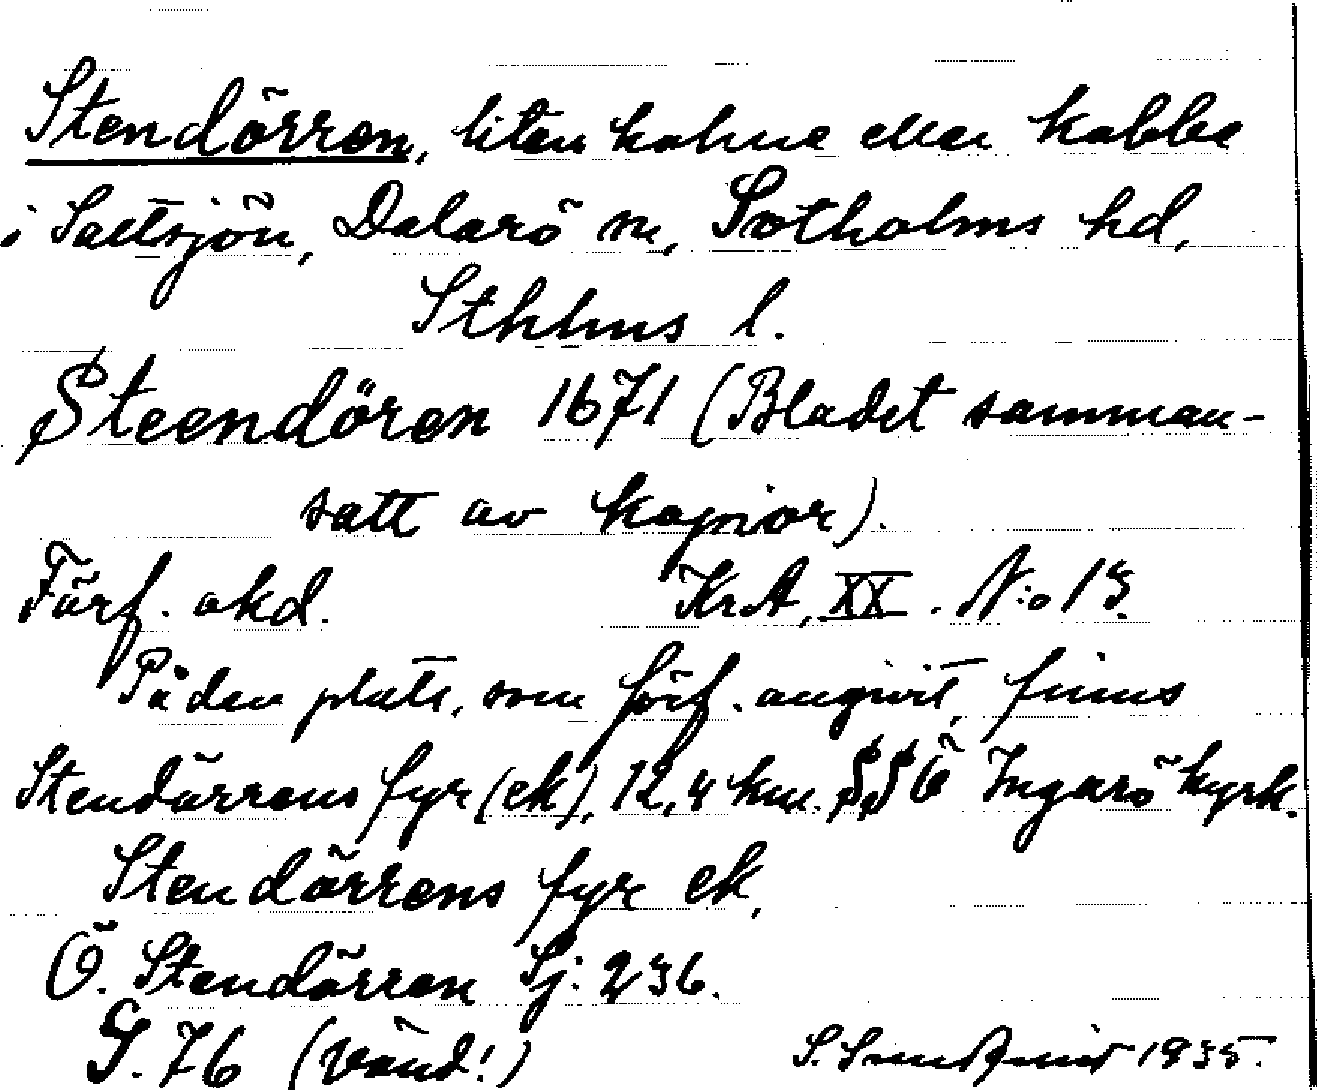 Stendörren, liten holme eller kobbe
i Saltsjön, Dalarö sn, Sotholms hd,
Sthlms l.
Steendören 1671 (Bladet samman-
satt av kopior).
Förf. okd. KrA, XX. N:o 13.
På den plats, som förf. angivit, finns
Stendörrens fyr (ek), 12,4 km. SSÖ Ingarö kyrk.
Stendörrens fyr ek,
Ö. Stendörren Sj: 236.
G. 76 (vänd!) S. 1935.